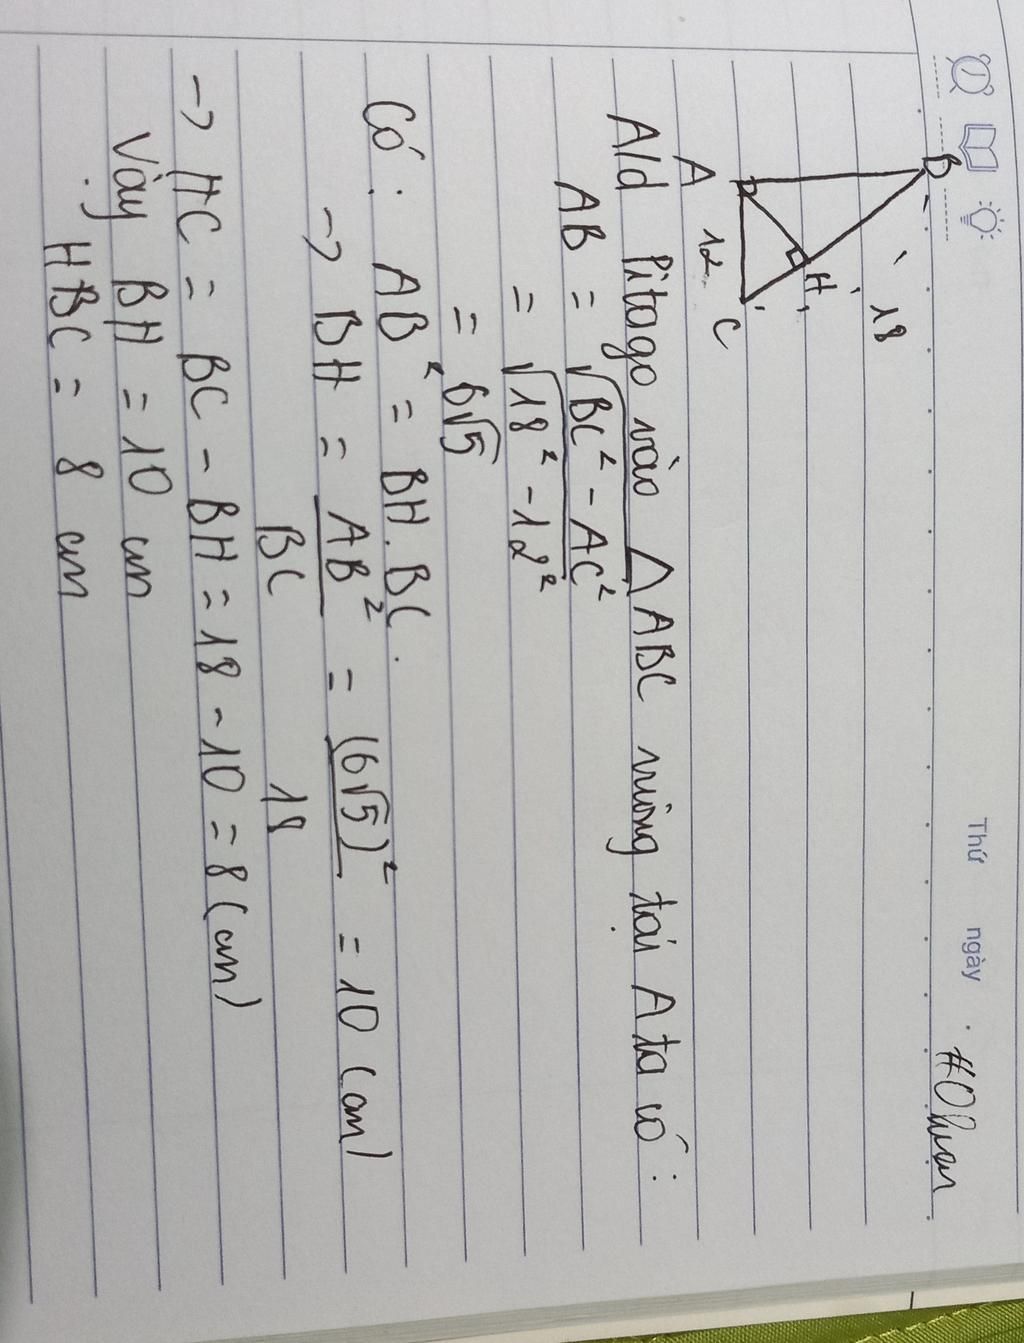 Thứ ngày
B
18
H
A
12
C
A/d Pitago vào △ABC vuông tại A ta có:
AB = √BC² - AC²
= √18² - 12²
= 6√5
Có: AB² = BH.BC.
→ BH = AB²/BC = (6√5)²/18 = 10 (cm)
→ HC = BC - BH = 18 - 10 = 8 (cm)
Vậy BH = 10 cm
HBC = 8 cm